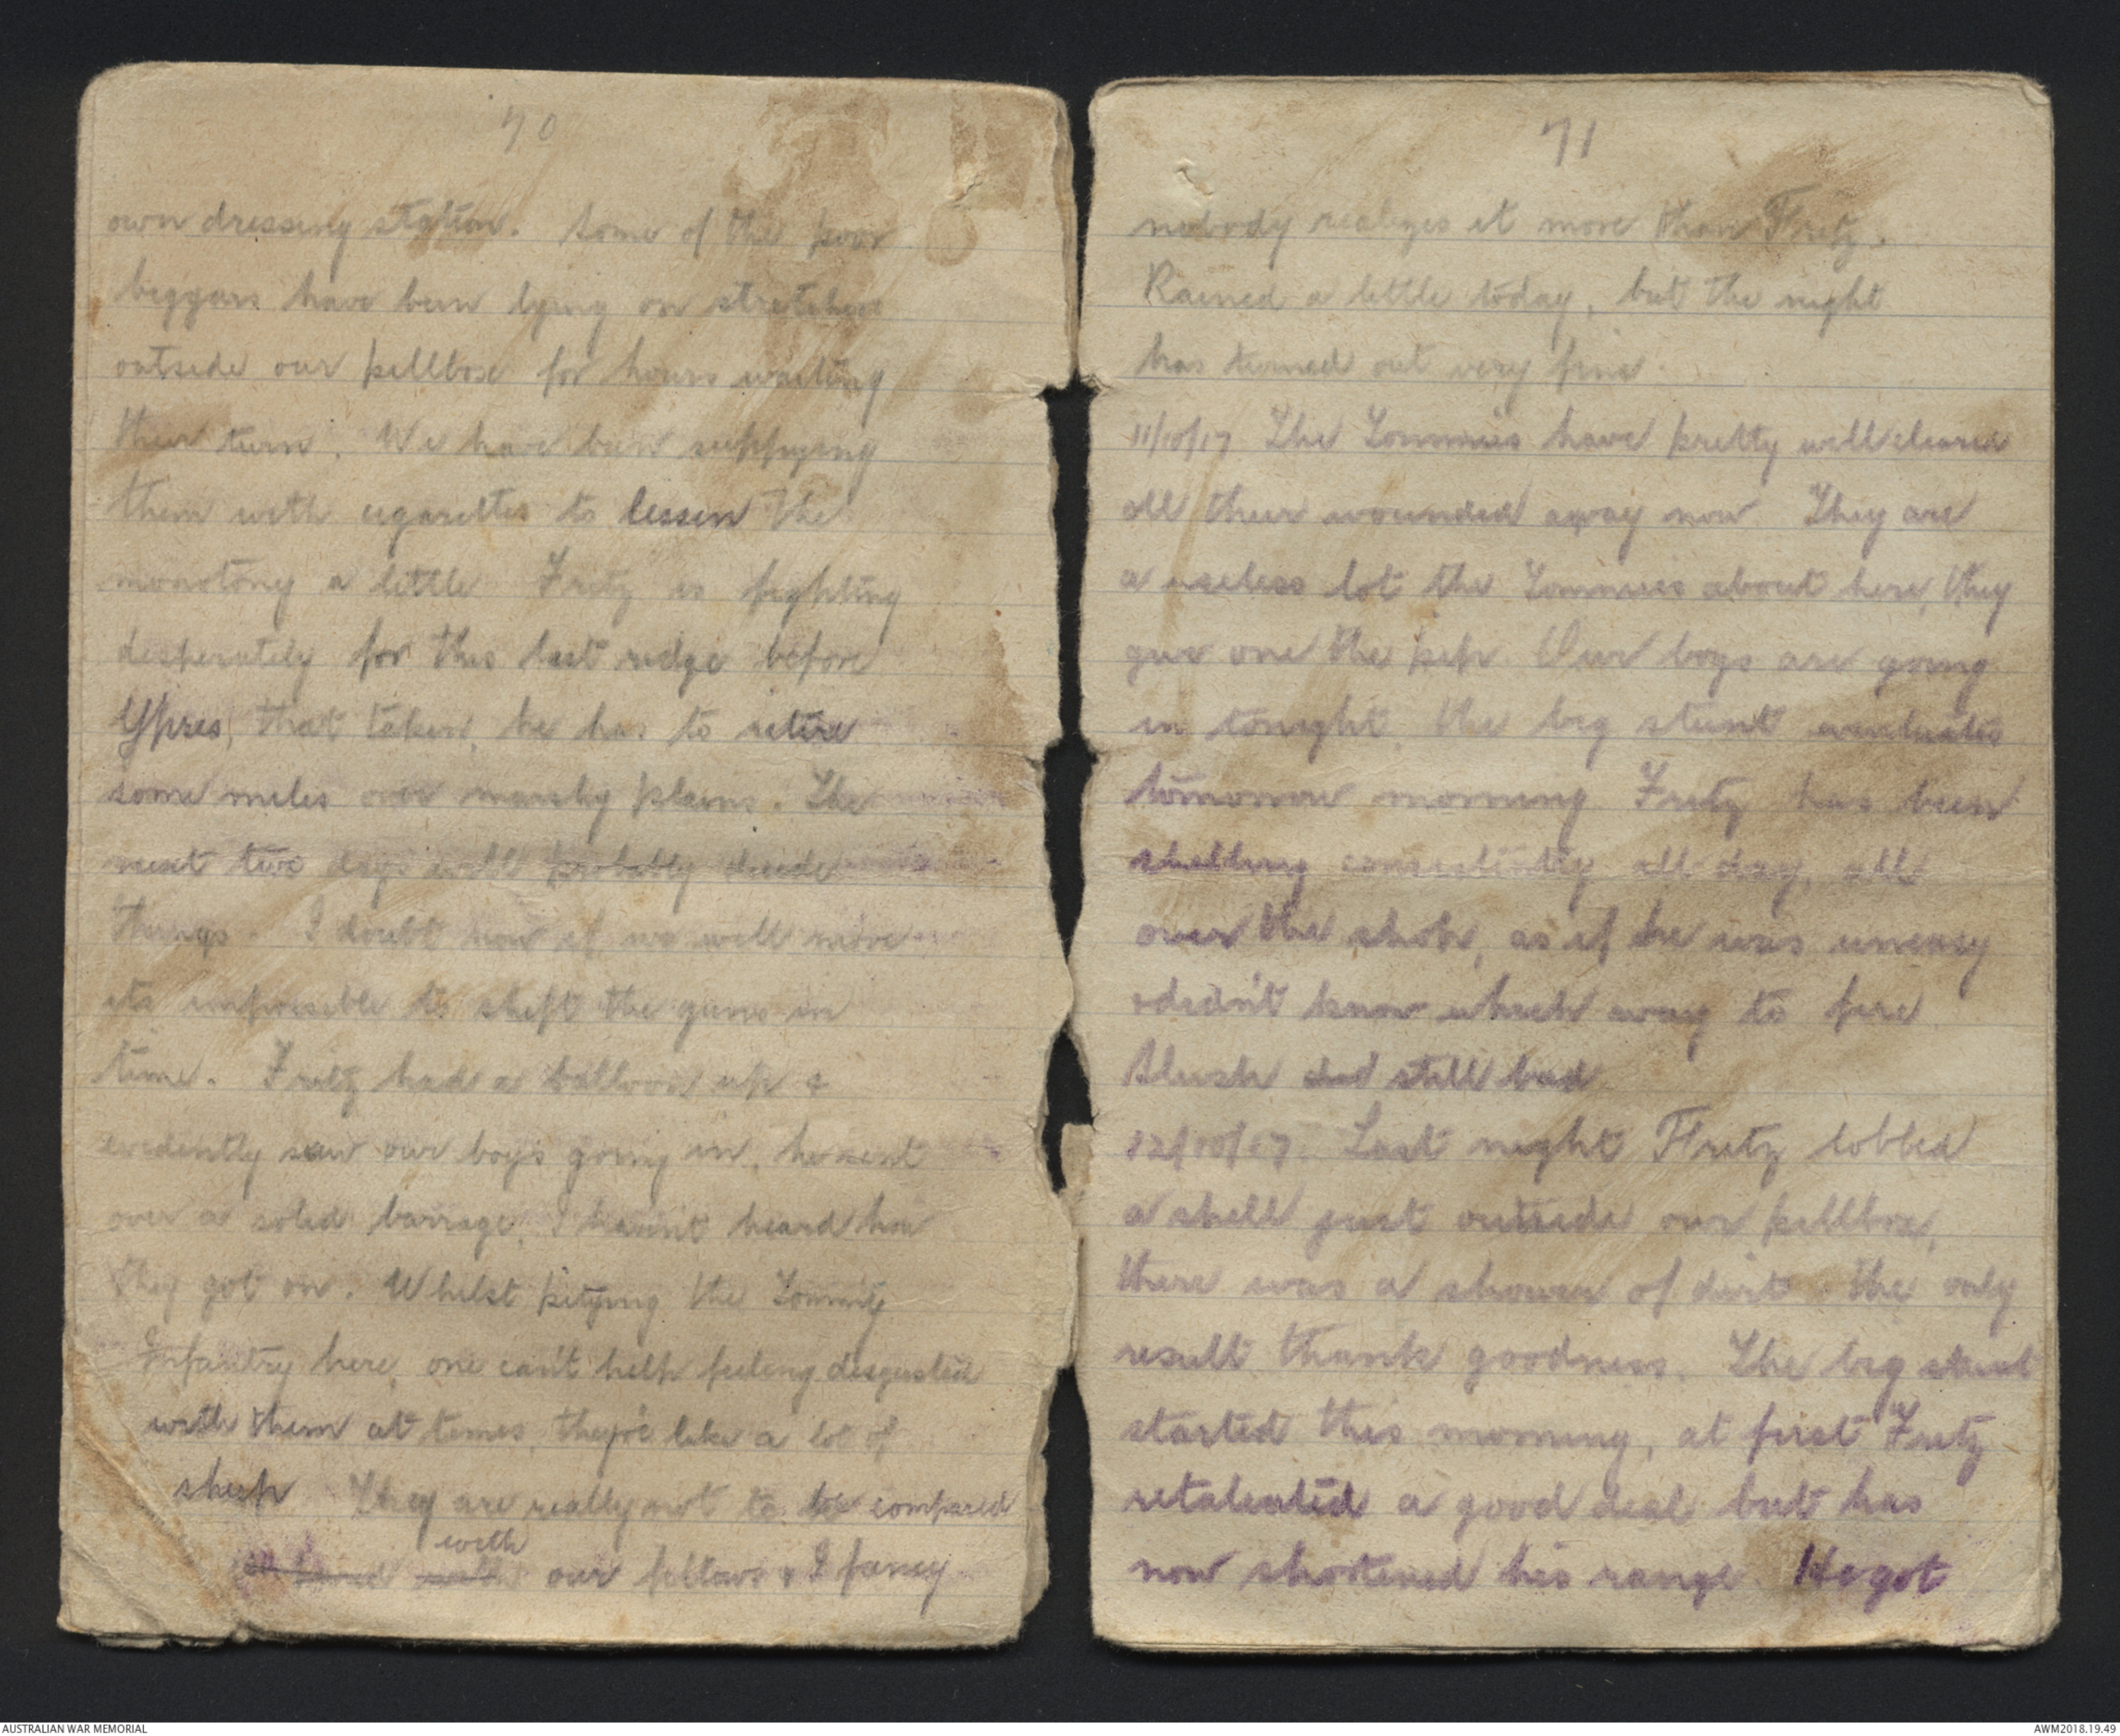 70
own dressing station. Some of the poor
beggars have been lying on stretchers
outside our pillbox for hours waiting
their turn. We have been supplying
them with cigarettes to lessen the
monotony a little Fritz is fighting
desperately for this last ridge before
Ypres, that taken, he has to retire
some miles over marshy plains. The
next two days will probably decide
things. I doubt now if we will move
its impossible to shift the guns in
time. Fritz had a balloon up &
evidently saw our boys going in, he sent
over a solid barrage, I haven't heard how
they got on. Whilst pitying the Tommy
Infantry here, one can't help feeling disgusted
with them at times, they're like a lot of
sheep They are really not to be compared
with
our fellows & I fancy
71
nobody realizes it more than Fritz.
Rained a little today, but the night
has turned out very fine
11/10/17 The Tommies have pretty well cleared
all their wounded away now They are
a useless lot the Tommies about here, they
give one the pip. Our boys are going
in tonight, the big stunt
tomorrow morning Fritz has been
shelling consistently all day, all
over the shop, as if he was uneasy
& didn't know which way to fire
Slush still bad
12/10/17. Last night Fritz lobbed
a shell just outside our pillbox,
there was a shower of dirt the only
result thank goodness. The big stunt
started this morning, at first Fritz
retaliated a good deal but has
now shortened his range He got
AUSTRALIAN WAR MEMORIAL
AWM2018.19.49